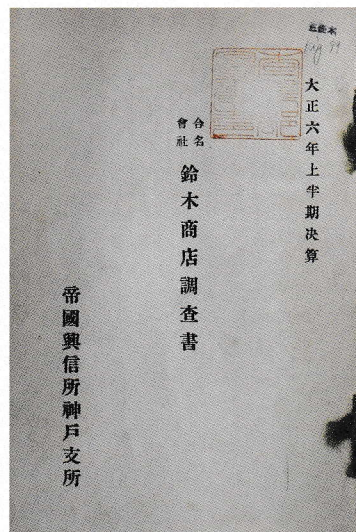 大正六年上半期決算
合名
會社
鈴木商店調查書
帝國興信所神戶支所